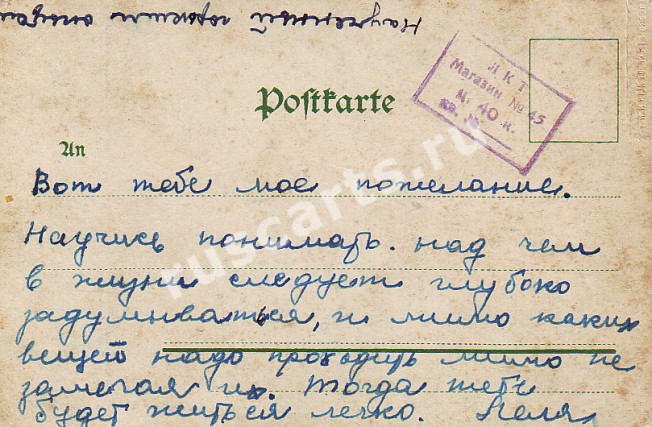 Наученный горьким опытом
Postkarte
ЛКТ
Магазин № 45
Ц. 40 к.
An
Вот тебе мое пожелание.
Научись понимать. над чем
в жизни следует глубоко
задумываться, и мимо каких
вещей надо проходить мимо не
замечая их. Тогда тебе
будет житься легко. Леля
ruscarts.ru